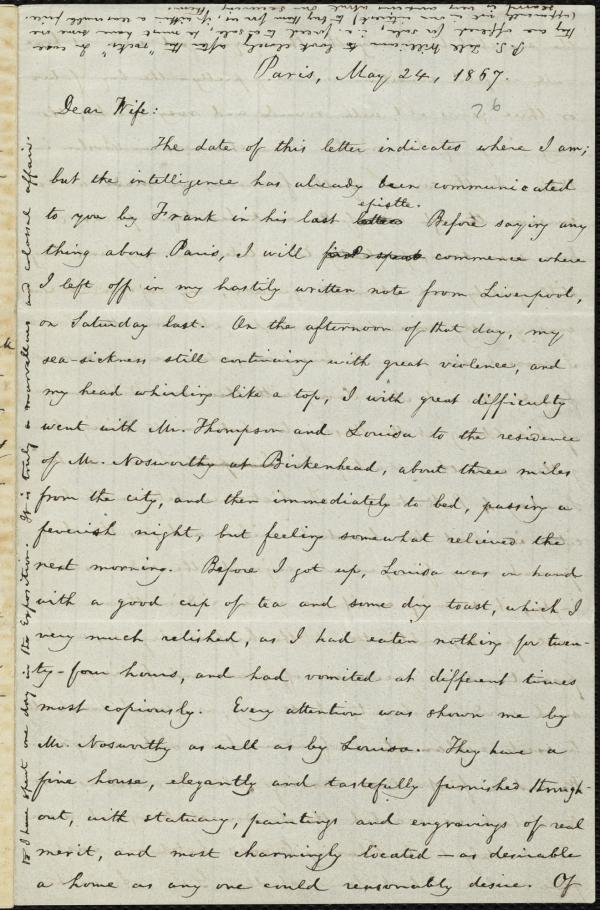 Paris, May 24, 1867.
26
Dear Wife:
The date of this letter indicates where I am;
but the intelligence has already been communicated
to you by Frank in his last letter epistle. Before saying any
thing about Paris, I will commence where
I left off in my hastily written note from Liverpool,
on Saturday last. On the afternoon of that day, my
sea-sickness still continuing with great violence, and
my head whirling like a top, I with great difficulty
went with Mr. Thompson and Louisa to the residence
of Mr. Nosworthy at Birkenhead, about three miles
from the city, and then immediately to bed, passing a
feverish night, but feeling somewhat relieved the
next morning. Before I got up, Louisa was on hand
with a good cup of tea and some dry toast, which I
very much relished, as I had eaten nothing for twen-
ty-four hours, and had vomited at different times
most copiously. Every attention was shown me by
Mr. Nosworthy as well as by Louisa. They have a
fine house, elegantly and tastefully furnished through-
out, with statuary, paintings and engravings of real
merit, and most charmingly located — as desirable
a home as any one could reasonably desire. Of
I have spent one day in the Exposition. It is truly a marvellous and colossal affair.
P.S. Tell William to look closely after the "rocks." In case
they are offered for sale, i.e. forced to a sale, he must have some one
to buy them for us, if within a reasonable price.